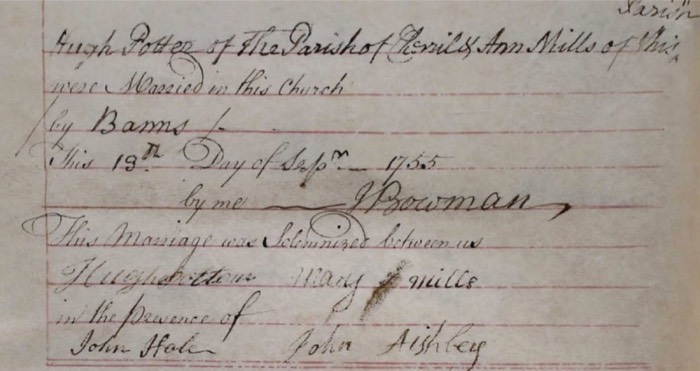 Parish
Hugh Potter of The Parish of Cheril & Ann Mills of this
were Married in this Church
by Banns
This 19th Day of Sepr 1755
by me J Bowman
This Marriage was Solemnized between us
Hugh Mary Mills
in the presence of
John Hale John Aishbey